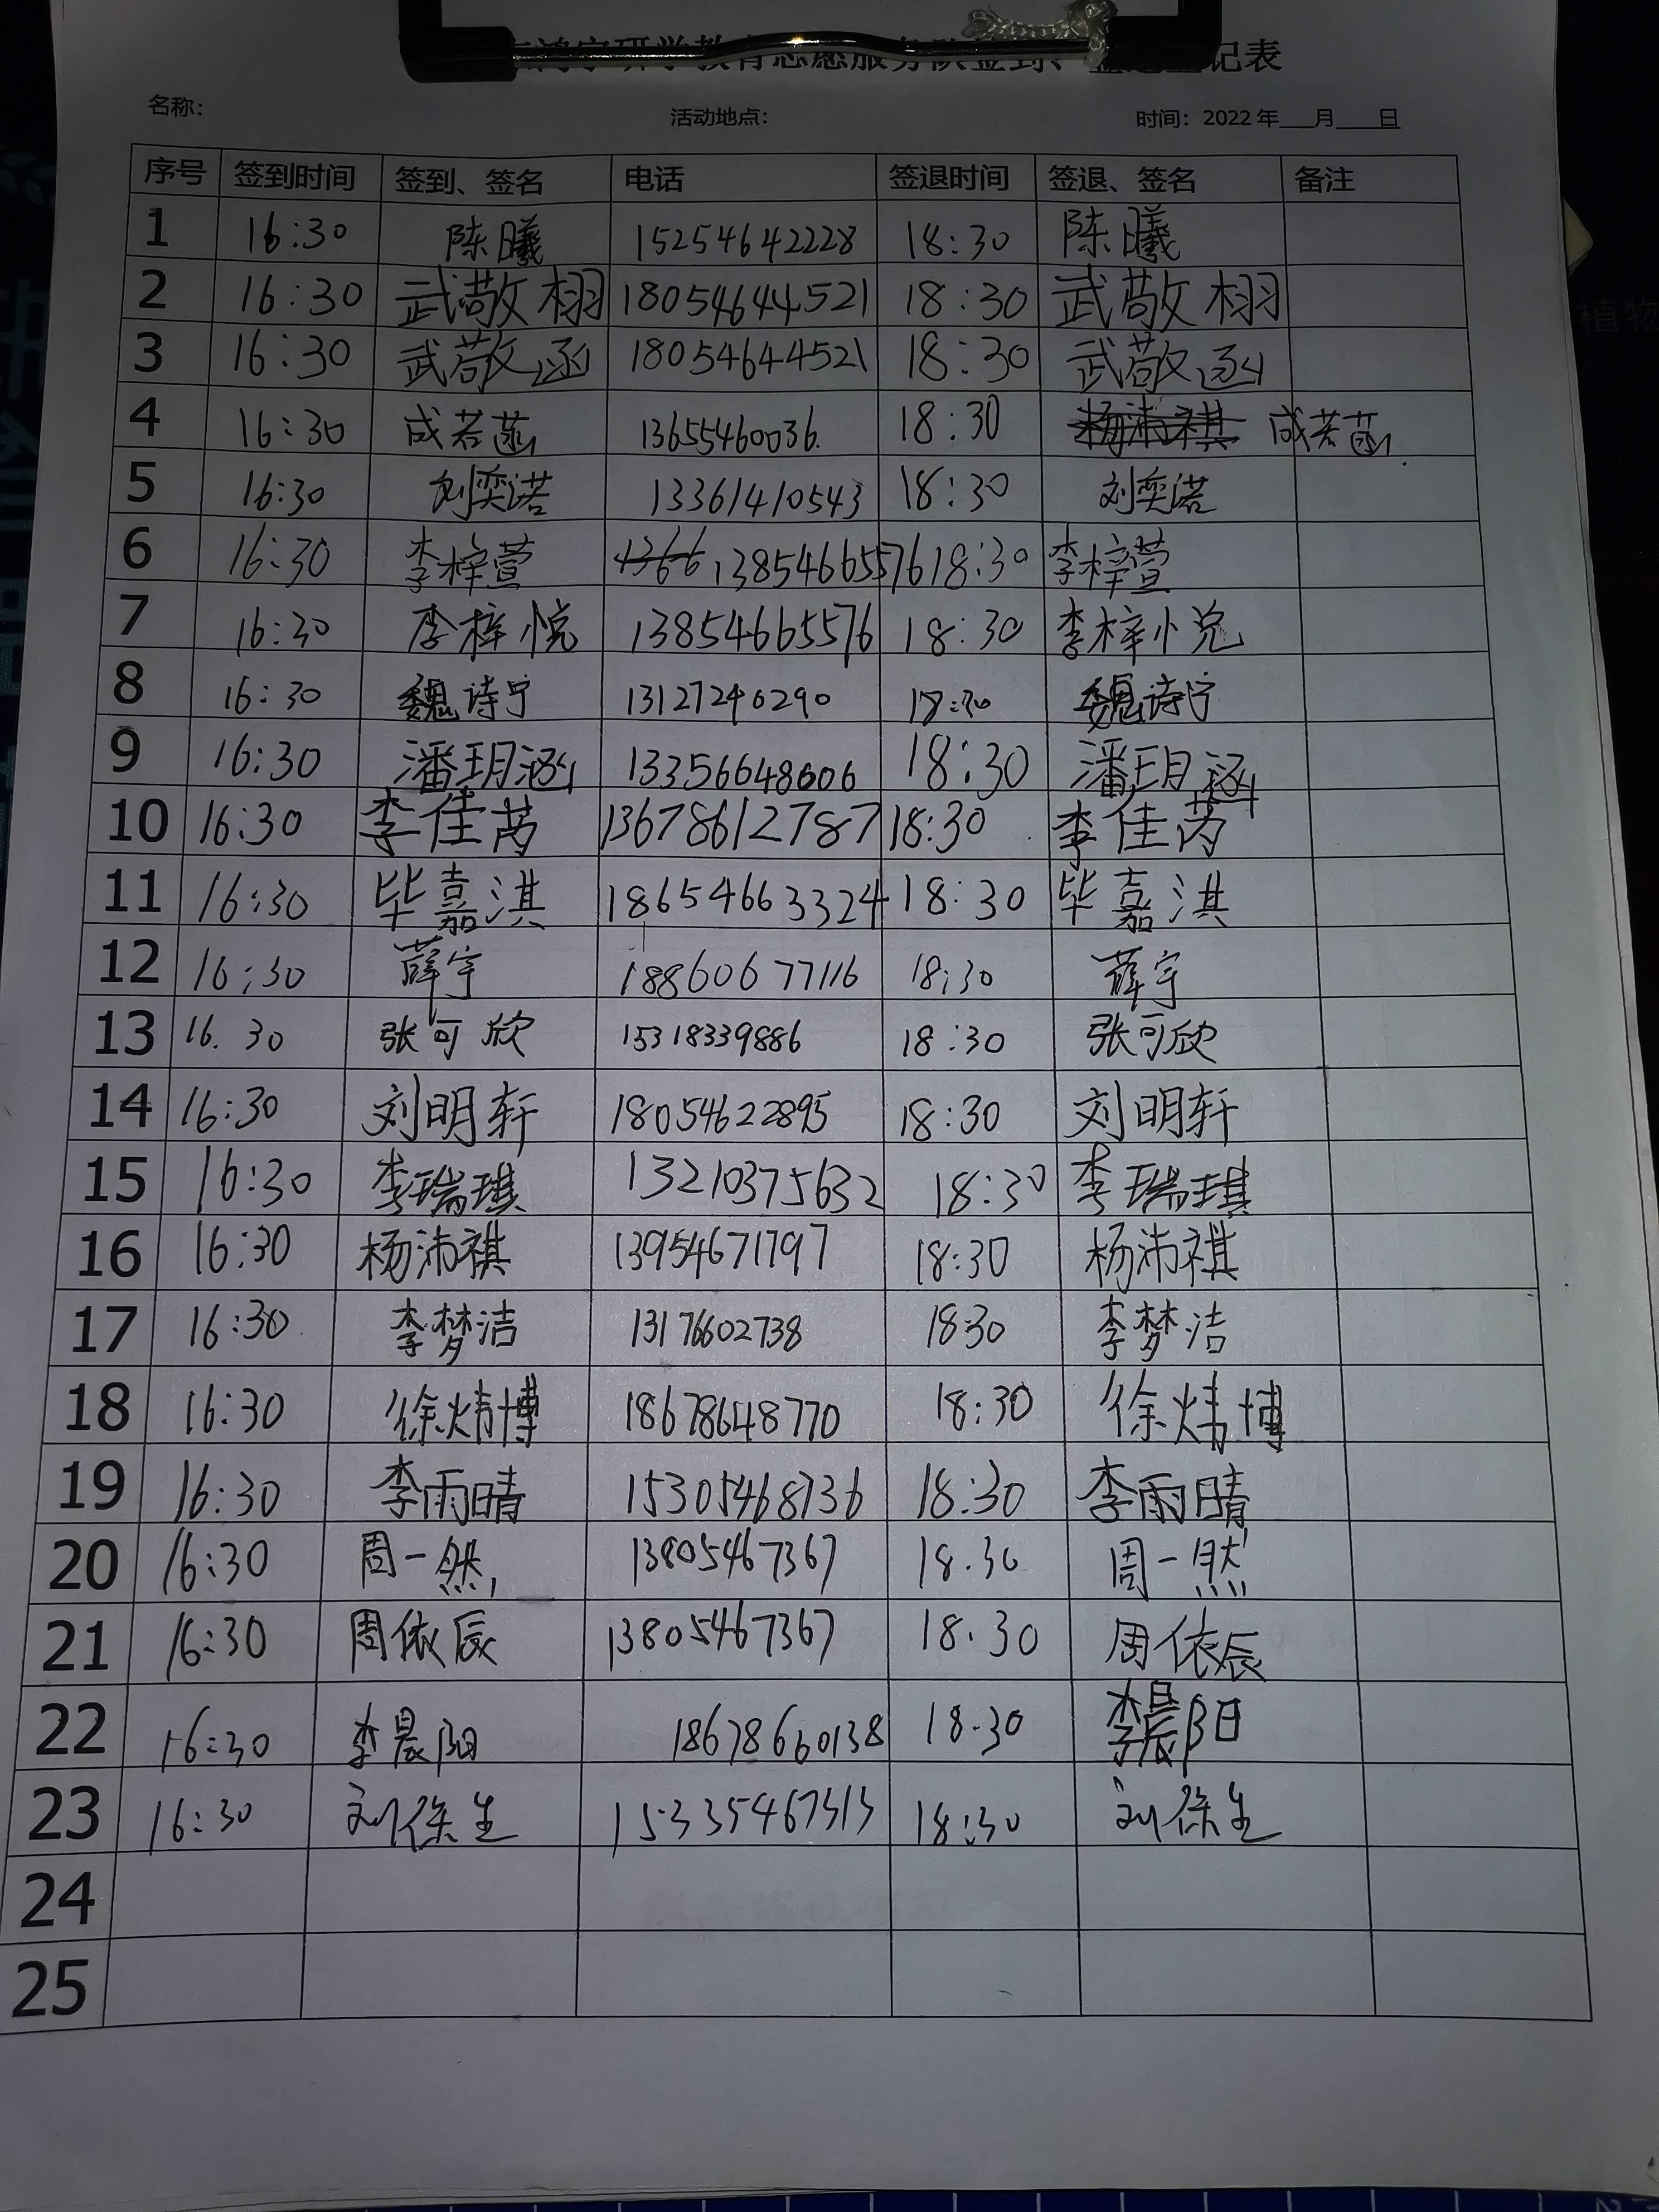 鸿宇研学教育志愿服务队签到、签退登记表
名称： 活动地点： 时间：2022年___月___日
序号 签到时间 签到、签名 电话 签退时间 签退、签名 备注
1 16:30 陈曦 15254642228 18:30 陈曦
2 16:30 武敬栩 18054644521 18:30 武敬栩
3 16:30 武敬函 18054644521 18:30 武敬函
4 16:30 成若菡 13655460036. 18:30 杨沛祺 成若菡
5 16:30 刘奕诺 13361410543 18:30 刘奕诺
6 16:30 李梓萱 1366 13854665576 18:30 李梓萱
7 16:30 李梓悦 13854665576 18:30 李梓悦
8 16:30 魏诗宁 13127240290 18:30 魏诗宁
9 16:30 潘玥涵 13356648606 18:30 潘玥涵
10 16:30 李佳芮 13678612787 18:30 李佳芮
11 16:30 毕嘉淇 18654663324 18:30 毕嘉淇
12 16:30 薛宇 18860677116 18:30 薛宇
13 16.30 张可欣 15318339886 18:30 张可欣
14 16:30 刘明轩 18054622895 18:30 刘明轩
15 16:30 李瑞琪 13210375632 18:30 李瑞琪
16 16:30 杨沛祺 13954671797 18:30 杨沛祺
17 16:30 李梦洁 13176602738 18:30 李梦洁
18 16:30 徐炜博 18678648770 18:30 徐炜博
19 16:30 李雨晴 15305468736 18:30 李雨晴
20 16:30 周一然 13805467367 18.30 周一然
21 16:30 周依辰 13805467367 18.30 周依辰
22 16:30 李晨阳 18678660138 18.30 李晨阳
23 16:30 刘保生 15335467313 18:30 刘保生
24
25
植物